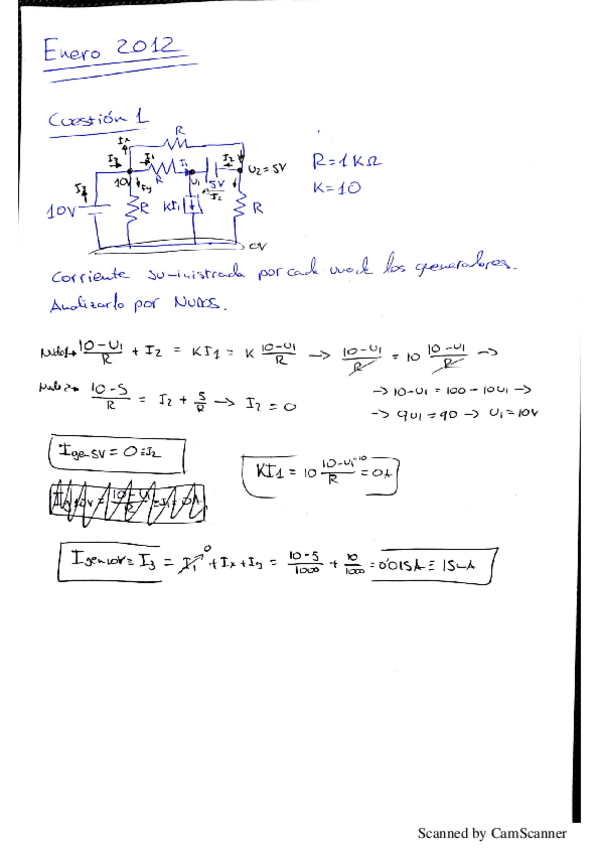 Enero 2012
Cuestión 1
R
Ix
I3
I1
I1
I2
U2=5V
R=1KΩ
R
10V
U1
5V
I2
K=10
I3
Iy
10V
R
KI1
R
0V
Corriente suministrada por cada uno de los generadores.
Analizarlo por NUDOS.
Nudo1→ 10-U1/R + I2 = KI1 = K 10-U1/R → 10-U1/R = 10 10-U1/R →
Nudo2→ 10-5/R = I2 + 5/R → I2 = 0
→ 10-U1 = 100-10U1 →
→ 9U1 = 90 → U1 = 10V
Igen5V = 0 = I2
KI1 = 10 10-U1=10/R = 0A
Igen10V = I3 = I1 0 + Ix + Iy = 10-5/1000 + 10/1000 = 0'015A ≡ 15mA
Scanned by CamScanner